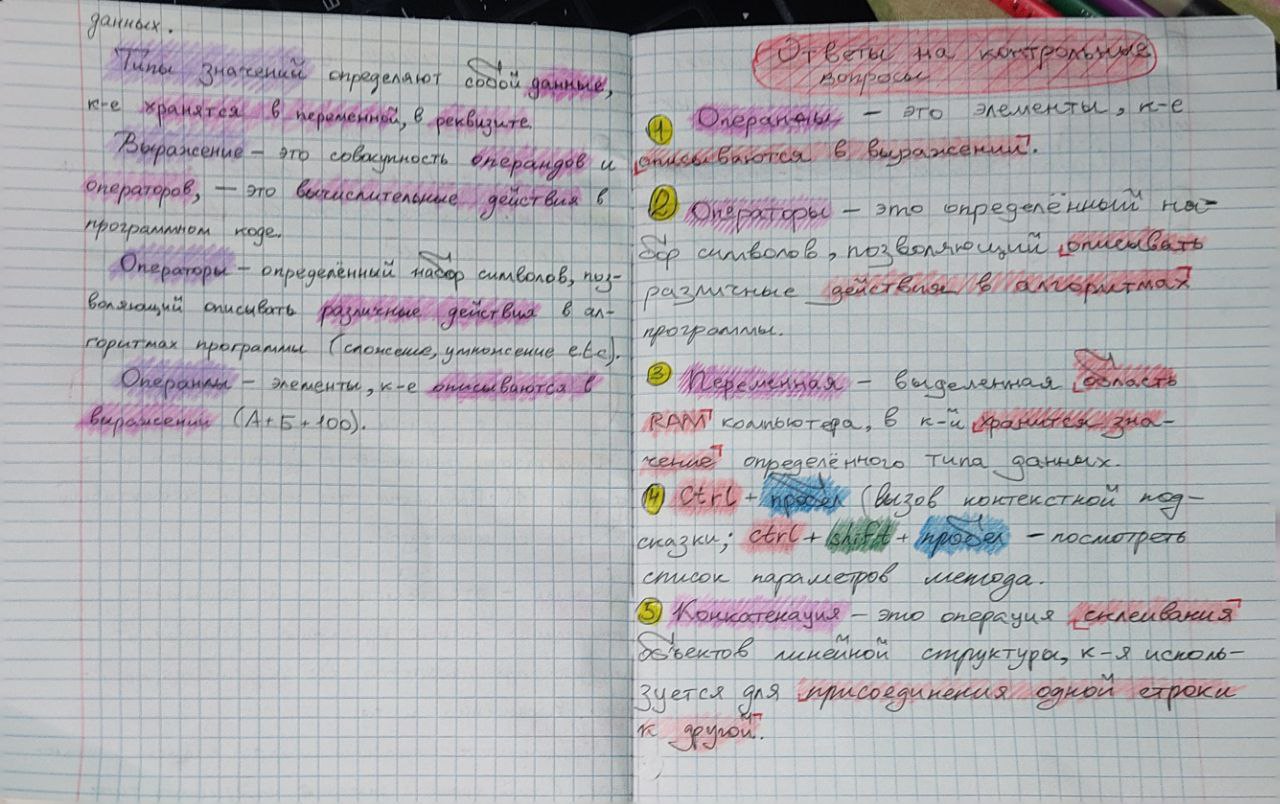 данных.
Типы значений определяют собой данные,
к-е хранятся в переменной, в реквизите.
Выражение – это совокупность операндов и
операторов, – это вычислительные действия в
программном коде.
Операторы – определённый набор символов, поз-
воляющий описывать различные действия в ал-
горитмах программы (сложение, умножение etc).
Операнды – элементы, к-е описываются в
выражении (А+Б+100).
Ответы на контрольные
вопросы
1 Операнды – это элементы, к-е
описываются в выражении.
2 Операторы – это определённый на-
бор символов, позволяющий описывать
различные действия в алгоритмах
программы.
3 Переменная – выделенная область
RAM компьютера, в к-й хранится зна-
чение определённого типа данных.
4 Ctrl + пробел (вызов контекстной под-
сказки; ctrl + shift + пробел – посмотреть
список параметров метода.
5 Конкатенация – это операция склеивания
объектов линейной структуры, к-я исполь-
зуется для присоединения одной строки
к другой.